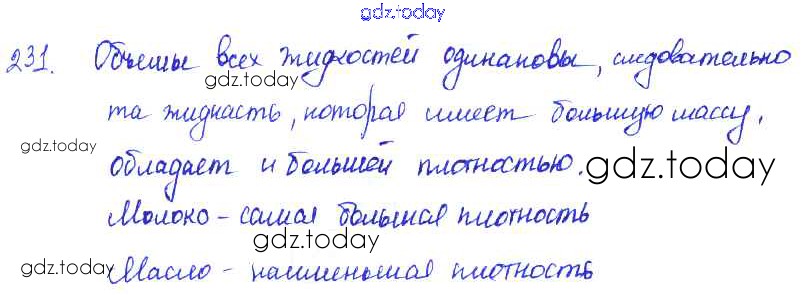 gdz.today
231. Объемы всех жидкостей одинаковы, следовательно
gdz.today
та жидкость, которая имеет большую массу,
gdz.today
обладает и большей плотностью.
gdz.today
Молоко - самая большая плотность
gdz.today
gdz.today
Масло - наименьшая плотность